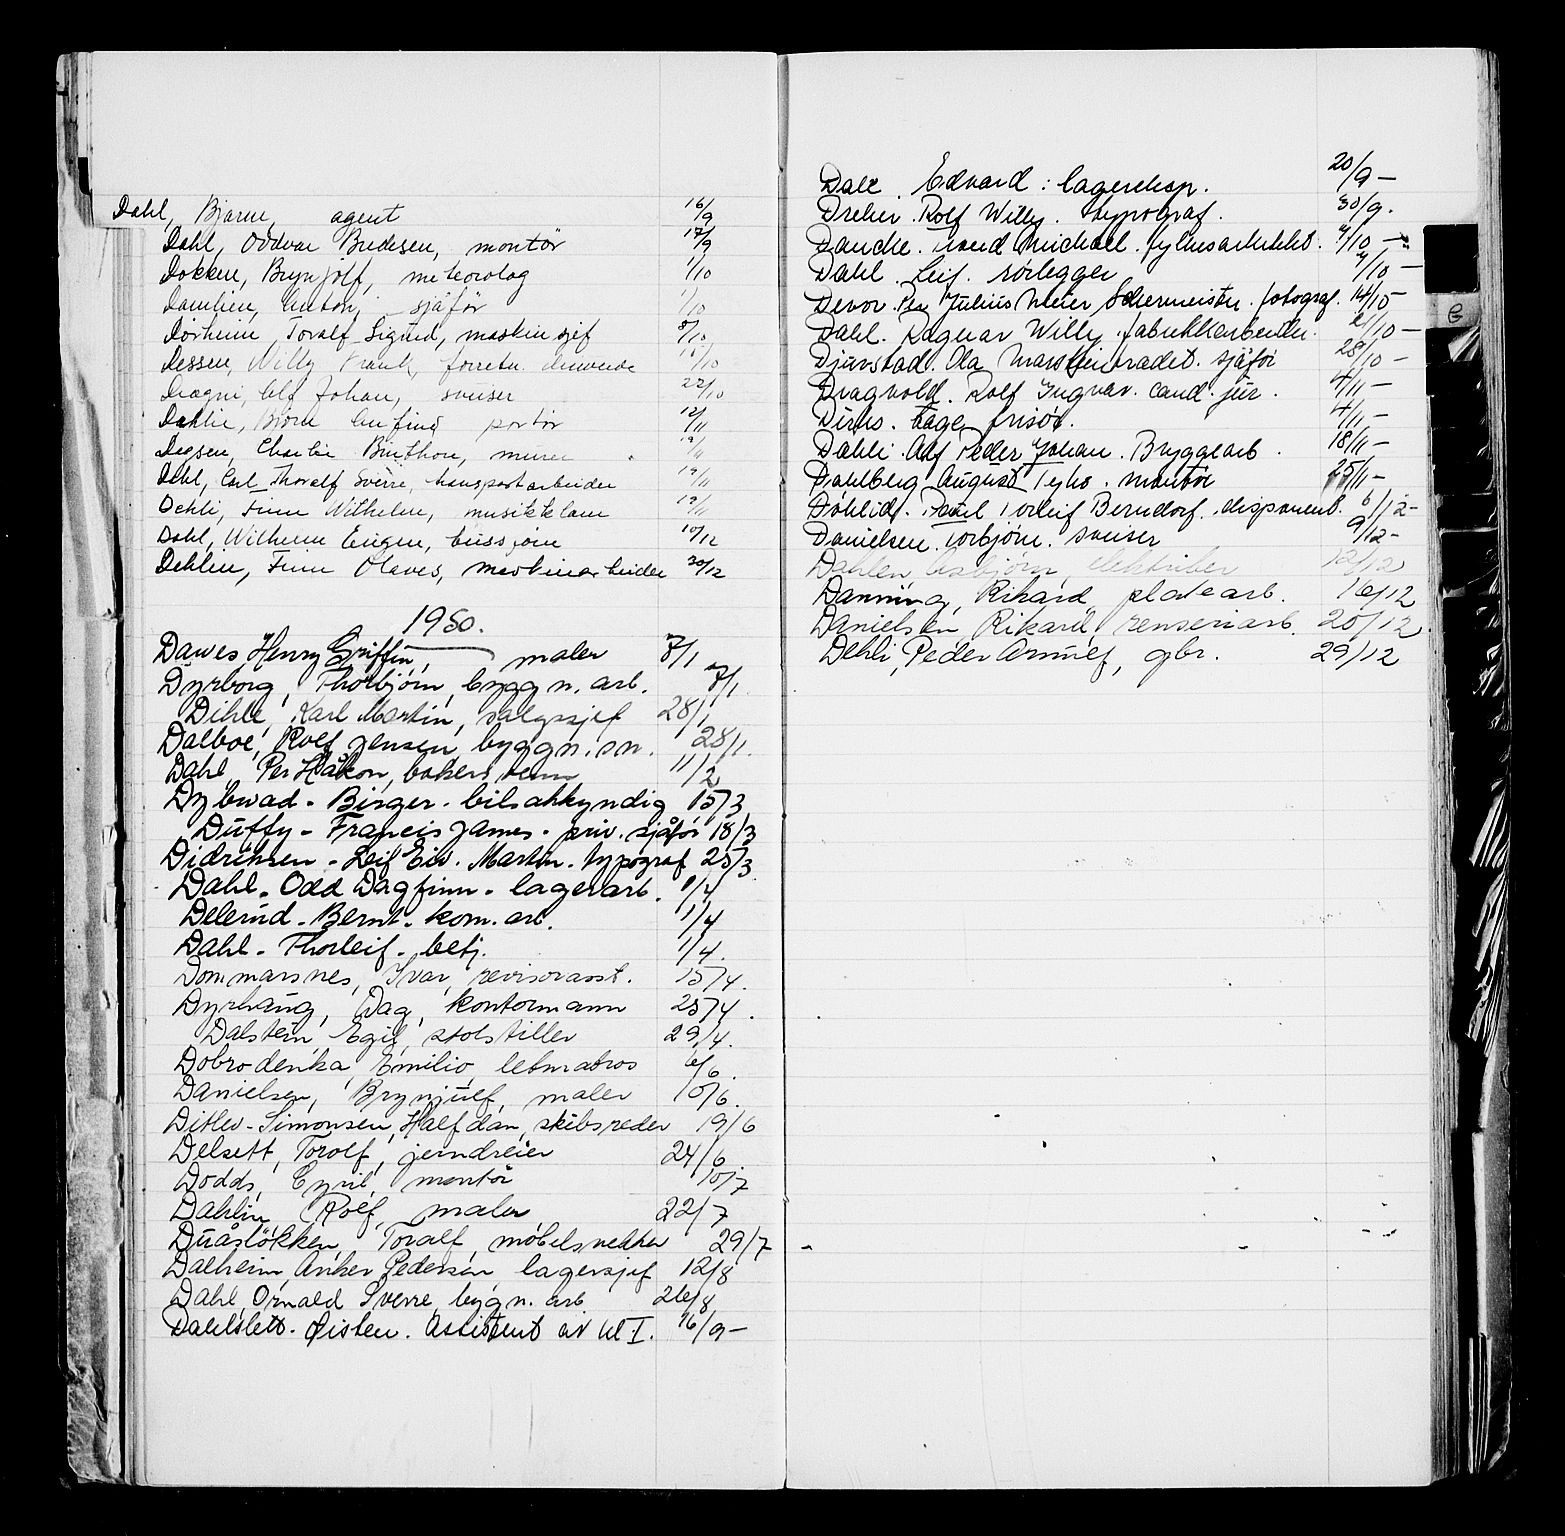 Dahl, Bjarne, agent 16/9
Dahl, Oddvar Bredesen, montör 17/9
Dokken, Brynjolf, meteorolog 1/10
Damlien, Anton, sjåför 1/10
Dörheim, Toralf Sigurd, maskinsjef 8/10
Dessen, Willy Frank, forretn. drivende 15/10
Drægni, Johan, snuser 22/10
Dahlin, Björn portör 12/11
Degsen, Charlie murer
Dahl, Carl Thoralf Sverre, transportarbeider 19/11
Dehli, Finn Wilhelm, 19/11
Dahl, Wilhelm Eugen, 10/12
Dehlin, Finn Olaves, maskinarbeider 20/12
1950.
Dawes Henry Griffin, maler 7/1
Dyrborg, Thorbjörn, byggn. arb. 7/1
Dihle, Karl Martin, salgssjef 28/1
Dalboe, Rolf Jensen, byggn. sn. 28/1.
Dahl, Per Håkon, bakersvenn 11/2
Dybwad - Birger - bilsakkyndig 15/3
Duffy - Francis James - priv. sjåför 18/3
Didriksen - Leif Eiv. Martin - typograf 25/3
Dahl - Odd Dagfinn - lagerarb. 1/4
Delerud - Bernt - kom. arb. 1/4
Dahl - Thorleif - betj. 1/4.
Dommarsnes, Ivar, revisorasst. 15/4.
Dyrhaug, Dag, kontormann 25/4.
Dalstein Egil, stolstiller 29/4.
Dobrodenka, Emilio, letmatros 6/6.
Danielsen, Brynjulf, maler 10/6.
Ditlev-Simonsen, Halfdan, skibsreder 19/6
Delsett, Torolf, jerndreier 24/6
Dodds, Cyril, montör 10/7
Dahlin, Rolf, maler 22/7
Duåslökken, Toralf, möbelsnekker 29/7
Dalheim, Anker Pedersen, lagersjef 12/8
Dahl, Ornald Sverre, bygn. arb. 26/8
Dahlslett. Øisten. Assistent av kl I. 16/9 -
Dale, Edvard: lagereksp. 20/9 -
Dreier. Rolf Willy. typograf. 30/9.
Dancke. Trond Michael. fylkesarkitekt. 4/10 -
Dahl. Leif. rörlegger 7/10 -
Devor. Per Julius Meier Schermeister. fotograf. 14/10 -
Dahl. Ragnar Willy. fabrikkarbeider. 21/10 -
Djuvstad. Ola Marsteinradet. sjåför 28/10 -
Dragvold. Rolf Ingvar. cand. jur. 4/11 -
Dirks. Aage, frisör. 4/11 -
Dahli. Alf Peder Johan. Bryggearb. 18/11 -
Dahlberg August Tyko. montör 25/11 -
Döhlid. Paul Torleif Berndorf. disponent. 6/12 -
Danielsen. Torbjörn. snuser 9/12 -
Dahlen, Asbjörn, elektriker 12/12
Danning, Rikard, platearb. 16/12
Danielsen, Rikard, renseriarb. 20/12
Dehli, Peder Arnulf, gbr. 29/12
G